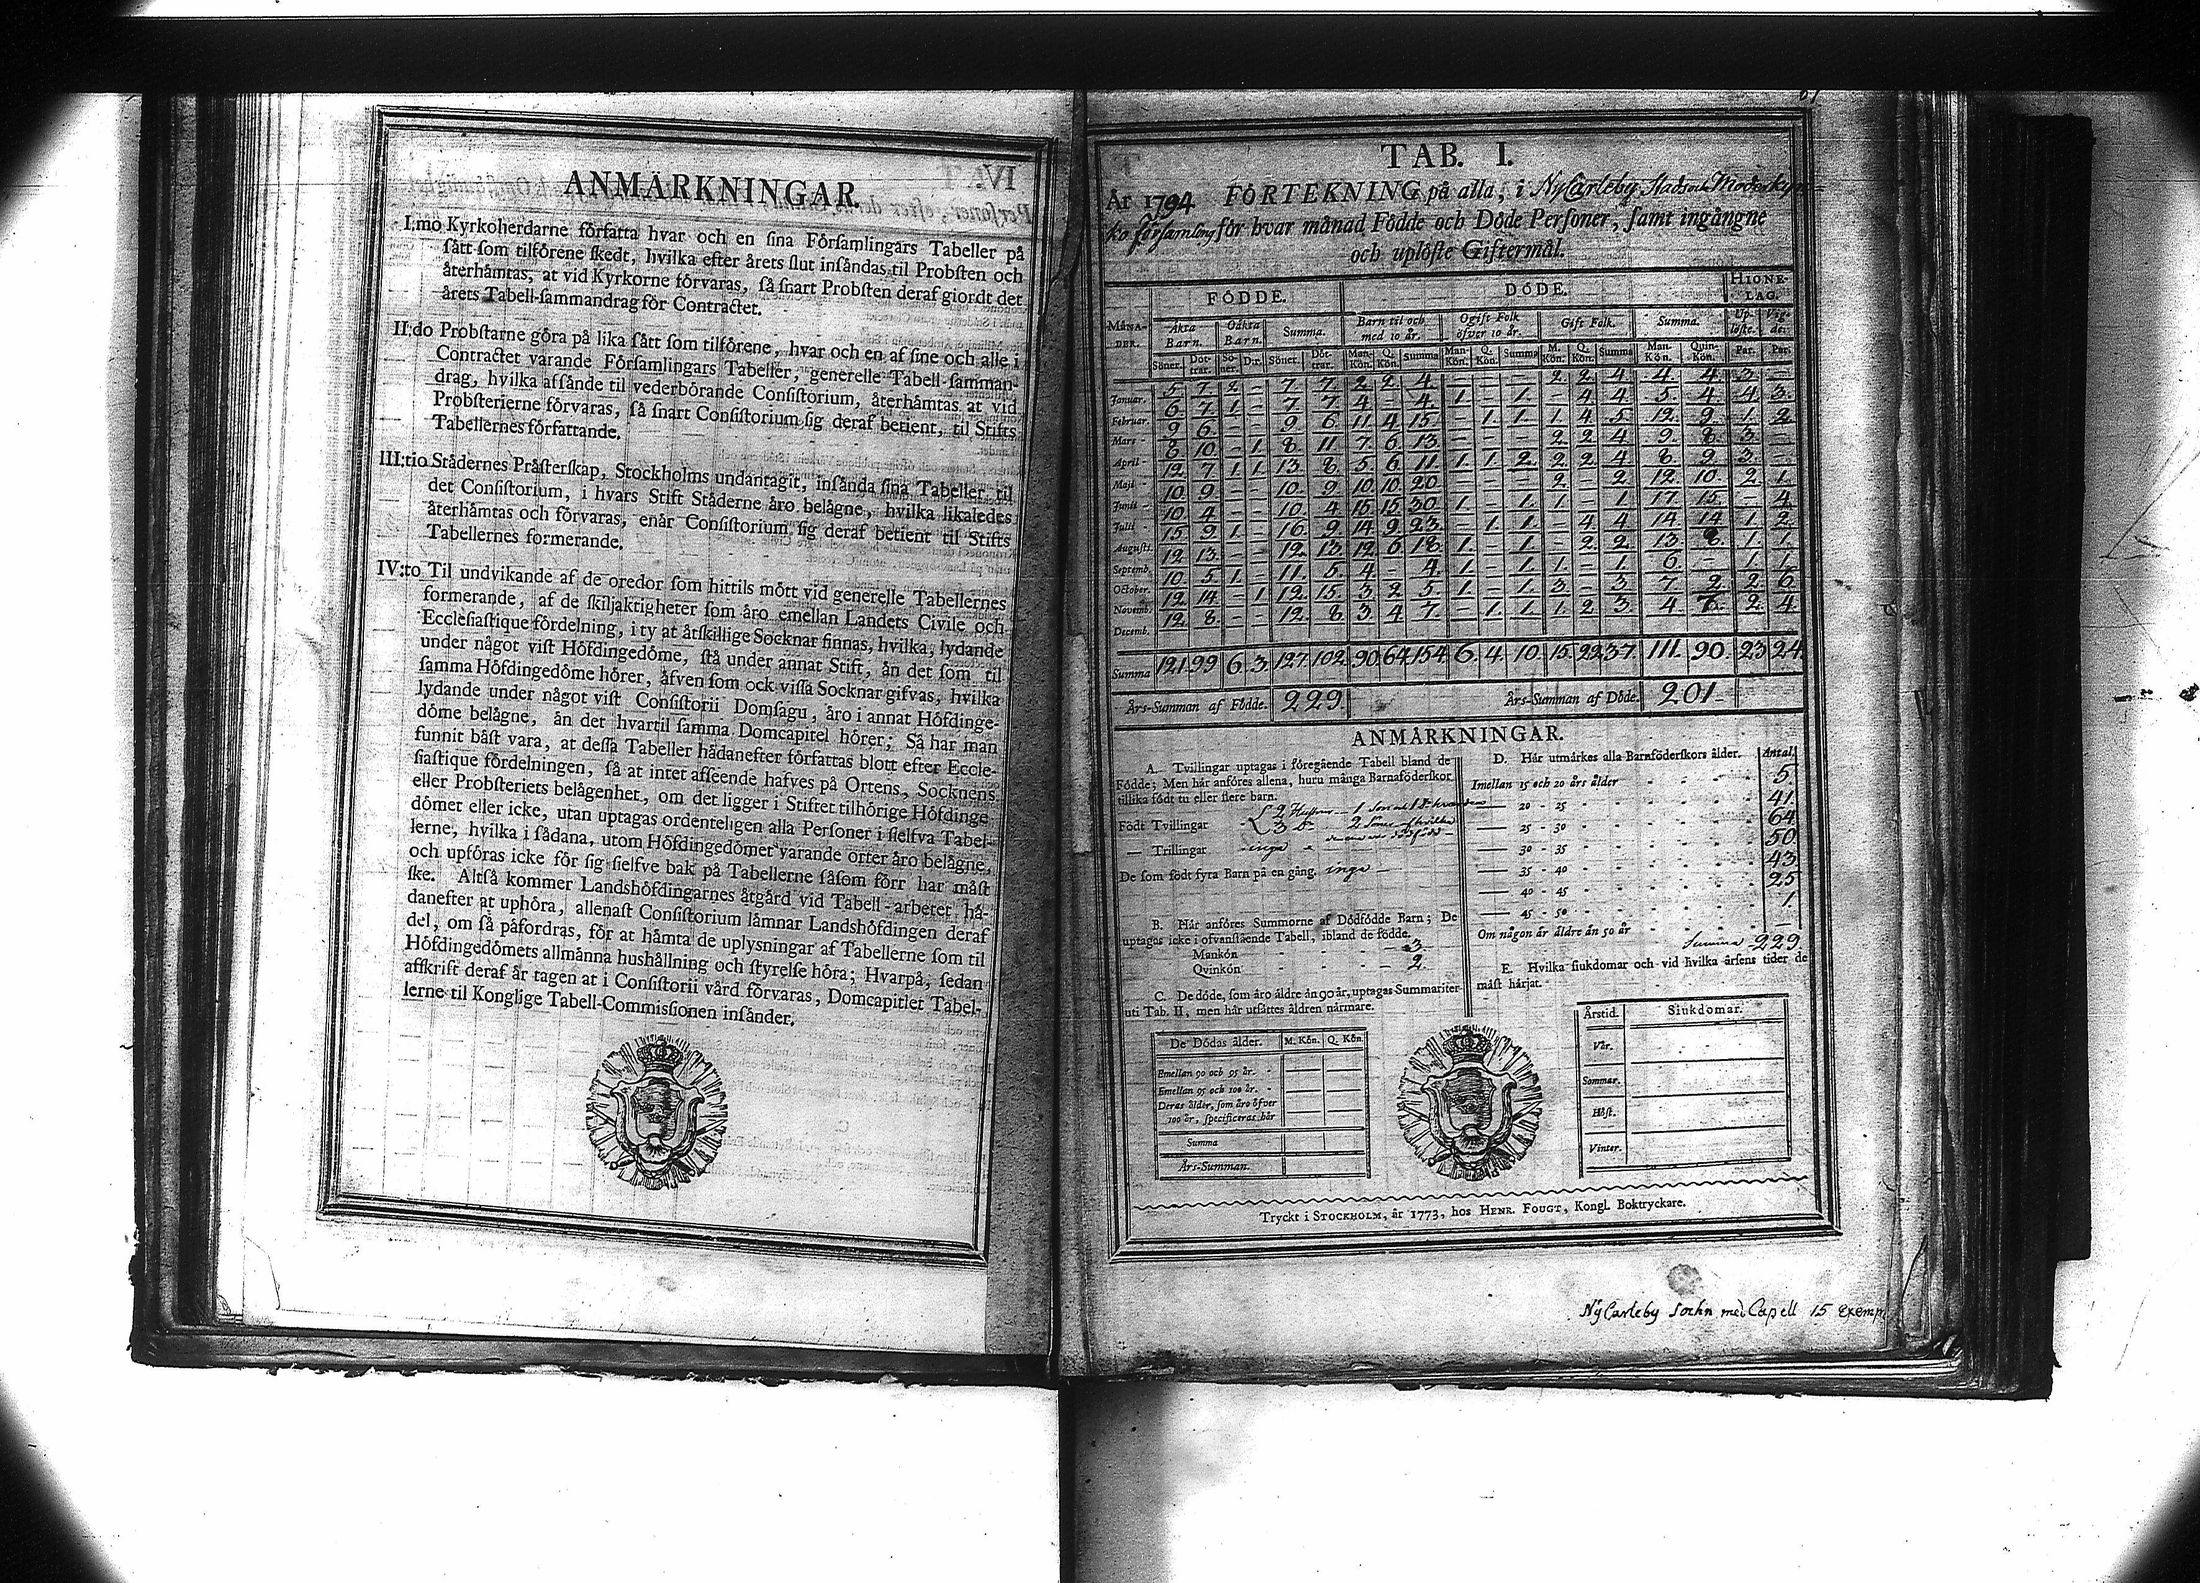 ANMÅRKNINGAR.
I:mo Kyrkoherdarne författa hvar och en sina Församlingars Tabeller på
sått som tilförene skedt, hvilka efter årets slut insåndas til Probsten och
återhåmtas, at vid Kyrkorne förvaras, så snart Probsten deraf giordt det
årets Tabell-sammandrag för Contractet.
II:do Probstarne göra på lika sått som tilförene, hvar och en af sine och alle i
Contractet varande Församlingars Tabeller, generelle Tabell-samman-
drag, hvilka afsånde til vederbörande Consistorium, återhåmtas at vid
Probsterierne förvaras, så snart Consistorium sig deraf betient, til Stifts
Tabellernes författande.
III:tio Stådernes Pråsterskap, Stockholms undantagit, insånda sina Tabeller til
det Consistorium, i hvars Stift Ståderne åro belågne, hvilka likaledes
återhåmtas och förvaras, enår Consistorium sig deraf betient til Stifts
Tabellernes formerande.
IV:to Til undvikande af de oredor som hittils mött vid generelle Tabellernes
formerande, af de skiljaktigheter som åro emellan Landets Civile och
Ecclesiastique fördelning, i ty at åtskillige Socknar finnas, hvilka, lydande
under något vist Höfdingedöme, stå under annat Stift, ån det som til
samma Höfdingedöme hörer, åfven som ock vissa Socknar gifvas, hvilka
lydande under något vist Consistorii Domsagu, åro i annat Höfdinge-
döme belågne, ån det hvartil samma Domcapitel hörer; Så har man
funnit båst vara, at dessa Tabeller hådanefter författas blott efter Eccle-
siastique fördelningen, så at intet afseende hafves på Ortens, Socknens
eller Probsteriets belågenhet, om det ligger i Stiftet tilhörige Höfdinge-
dömet eller icke, utan uptagas ordenteligen alla Personer i sielfva Tabel-
lerne, hvilka i sådana, utom Höfdingedömet varande orter åro belågne,
och upföras icke för sig sielfve bak på Tabellerne såsom förr har måst
ske. Altså kommer Landshöfdingarnes åtgård vid Tabell-arbetet hå-
danefter at uphöra, allenast Consistorium låmnar Landshöfdingen deraf
del, om så påfordras, för at håmta de uplysningar af Tabellerne som til
Höfdingedömets allmånna hushållning och styrelse höra; Hvarpå, sedan
afskrift deraf år tagen at i Consistorii vård förvaras, Domcapitlet Tabel-
lerne til Konglige Tabell-Commissionen insånder.
TAB. I.
År 1794 FÖRTEKNING på alla, i NyCarleby Stads och Moderkyr-
ko församling för hvar månad Födde och Döde Personer, samt ingångne
och uplöste Giftermål.
FÖDDE. DÖDE. HIONE-LAG.
MÅNA-DER. Åkta Barn. Oåkta Barn. Summa. Barn til och med 10 år. Ogift Folk öfver 10 år. Gift Folk. Summa. Up-löste. Vig-de.
Söner. Döt-trar. Sö-ner. D:r. Söner. Döt-trar. Man-Kön. Q. Kön. Summa Man-Kön. Q. Kön. Summa M. Kön. Q. Kön. Summa Man-Kön. Quin-Kön. Par. Par.
Januar. 5 7 2 - 7 7 2 2 4 - - - 2 2 4 4 4 3 -
Februar. 6 7 1 - 7 7 4 - 4 1 - 1 - 4 4 5 4 4 3
Mars 9 6 - - 9 6 11 4 15 - 1 1 1 4 5 12 9 1 2
April 8 10 - 1 8 11 7 6 13 - - - 2 2 4 9 8 3 -
Maji 12 7 1 1 13 8 5 6 11 1 1 2 2 2 4 8 9 3 -
Junii 10 9 - - 10 9 10 10 20 - - - 2 - 2 12 10 2 1
Julii 10 4 - - 10 4 15 15 30 1 - 1 1 - 1 17 15 - 4
Augusti. 15 9 1 - 16 9 14 9 23 - 1 1 - 4 4 14 14 1 2
Septemb. 12 13 - - 12 13 12 6 18 1 - 1 - 2 2 13 8 1 1
October. 10 5 1 - 11 5 4 - 4 1 - 1 1 - 1 6 - 1 1
Novemb. 12 14 - 1 12 15 3 2 5 1 - 1 3 - 3 7 2 2 6
Decemb. 12 8 - - 12 8 3 4 7 - 1 1 1 2 3 4 7 2 4
Summa 121 99 6 3 127 102 90 64 154 6 4 10 15 22 37 111 90 23 24
Års-Summan af Födde. 229 Års-Summan af Döde. 201
ANMÅRKNINGAR.
A. Tvillingar uptagas i föregående Tabell bland de
Födde; Men hår anföres allena, huru många Barnaföderskor
tillika födt tu eller flere barn.
Födt Tvillingar 2 Hustrur - 1 Son och 1 D
3 D - 2 Söner af hvilka
— Trillingar inga
De som födt fyra Barn på en gång. inga
B. Hår anföres Summorne af Dödfödde Barn; De
uptagas icke i ofvanstående Tabell, ibland de födde.
Mankön 3
Qvinkön 2
C. De döde, som åro åldre ån 90 år, uptagas Summariter
uti Tab. II, men hår utsåttes åldren nårmare.
De Dödas ålder. M. Kön. Q. Kön.
Emellan 90 och 95 år.
Emellan 95 och 100 år.
Deras ålder, som åro öfver
100 år, specificeras hår
Summa
Års-Summan.
D. Hår utmårkes alla Barnföderskors ålder. Antal
Imellan 15 och 20 års ålder 5
— 20 - 25 41
— 25 - 30 64
— 30 - 35 50
— 35 - 40 43
— 40 - 45 25
— 45 - 50 1
Om någon år åldre ån 50 år -
Summa 229
E. Hvilka siukdomar och vid hvilka årsens tider de
måst hårjat.
Årstid. Siukdomar.
Vår.
Sommar.
Höst.
Vinter.
Tryckt i STOCKHOLM, år 1773, hos HENR. FOUGT, Kongl. Boktryckare.
NyCarleby Sochn med Capell 15 Exemp.